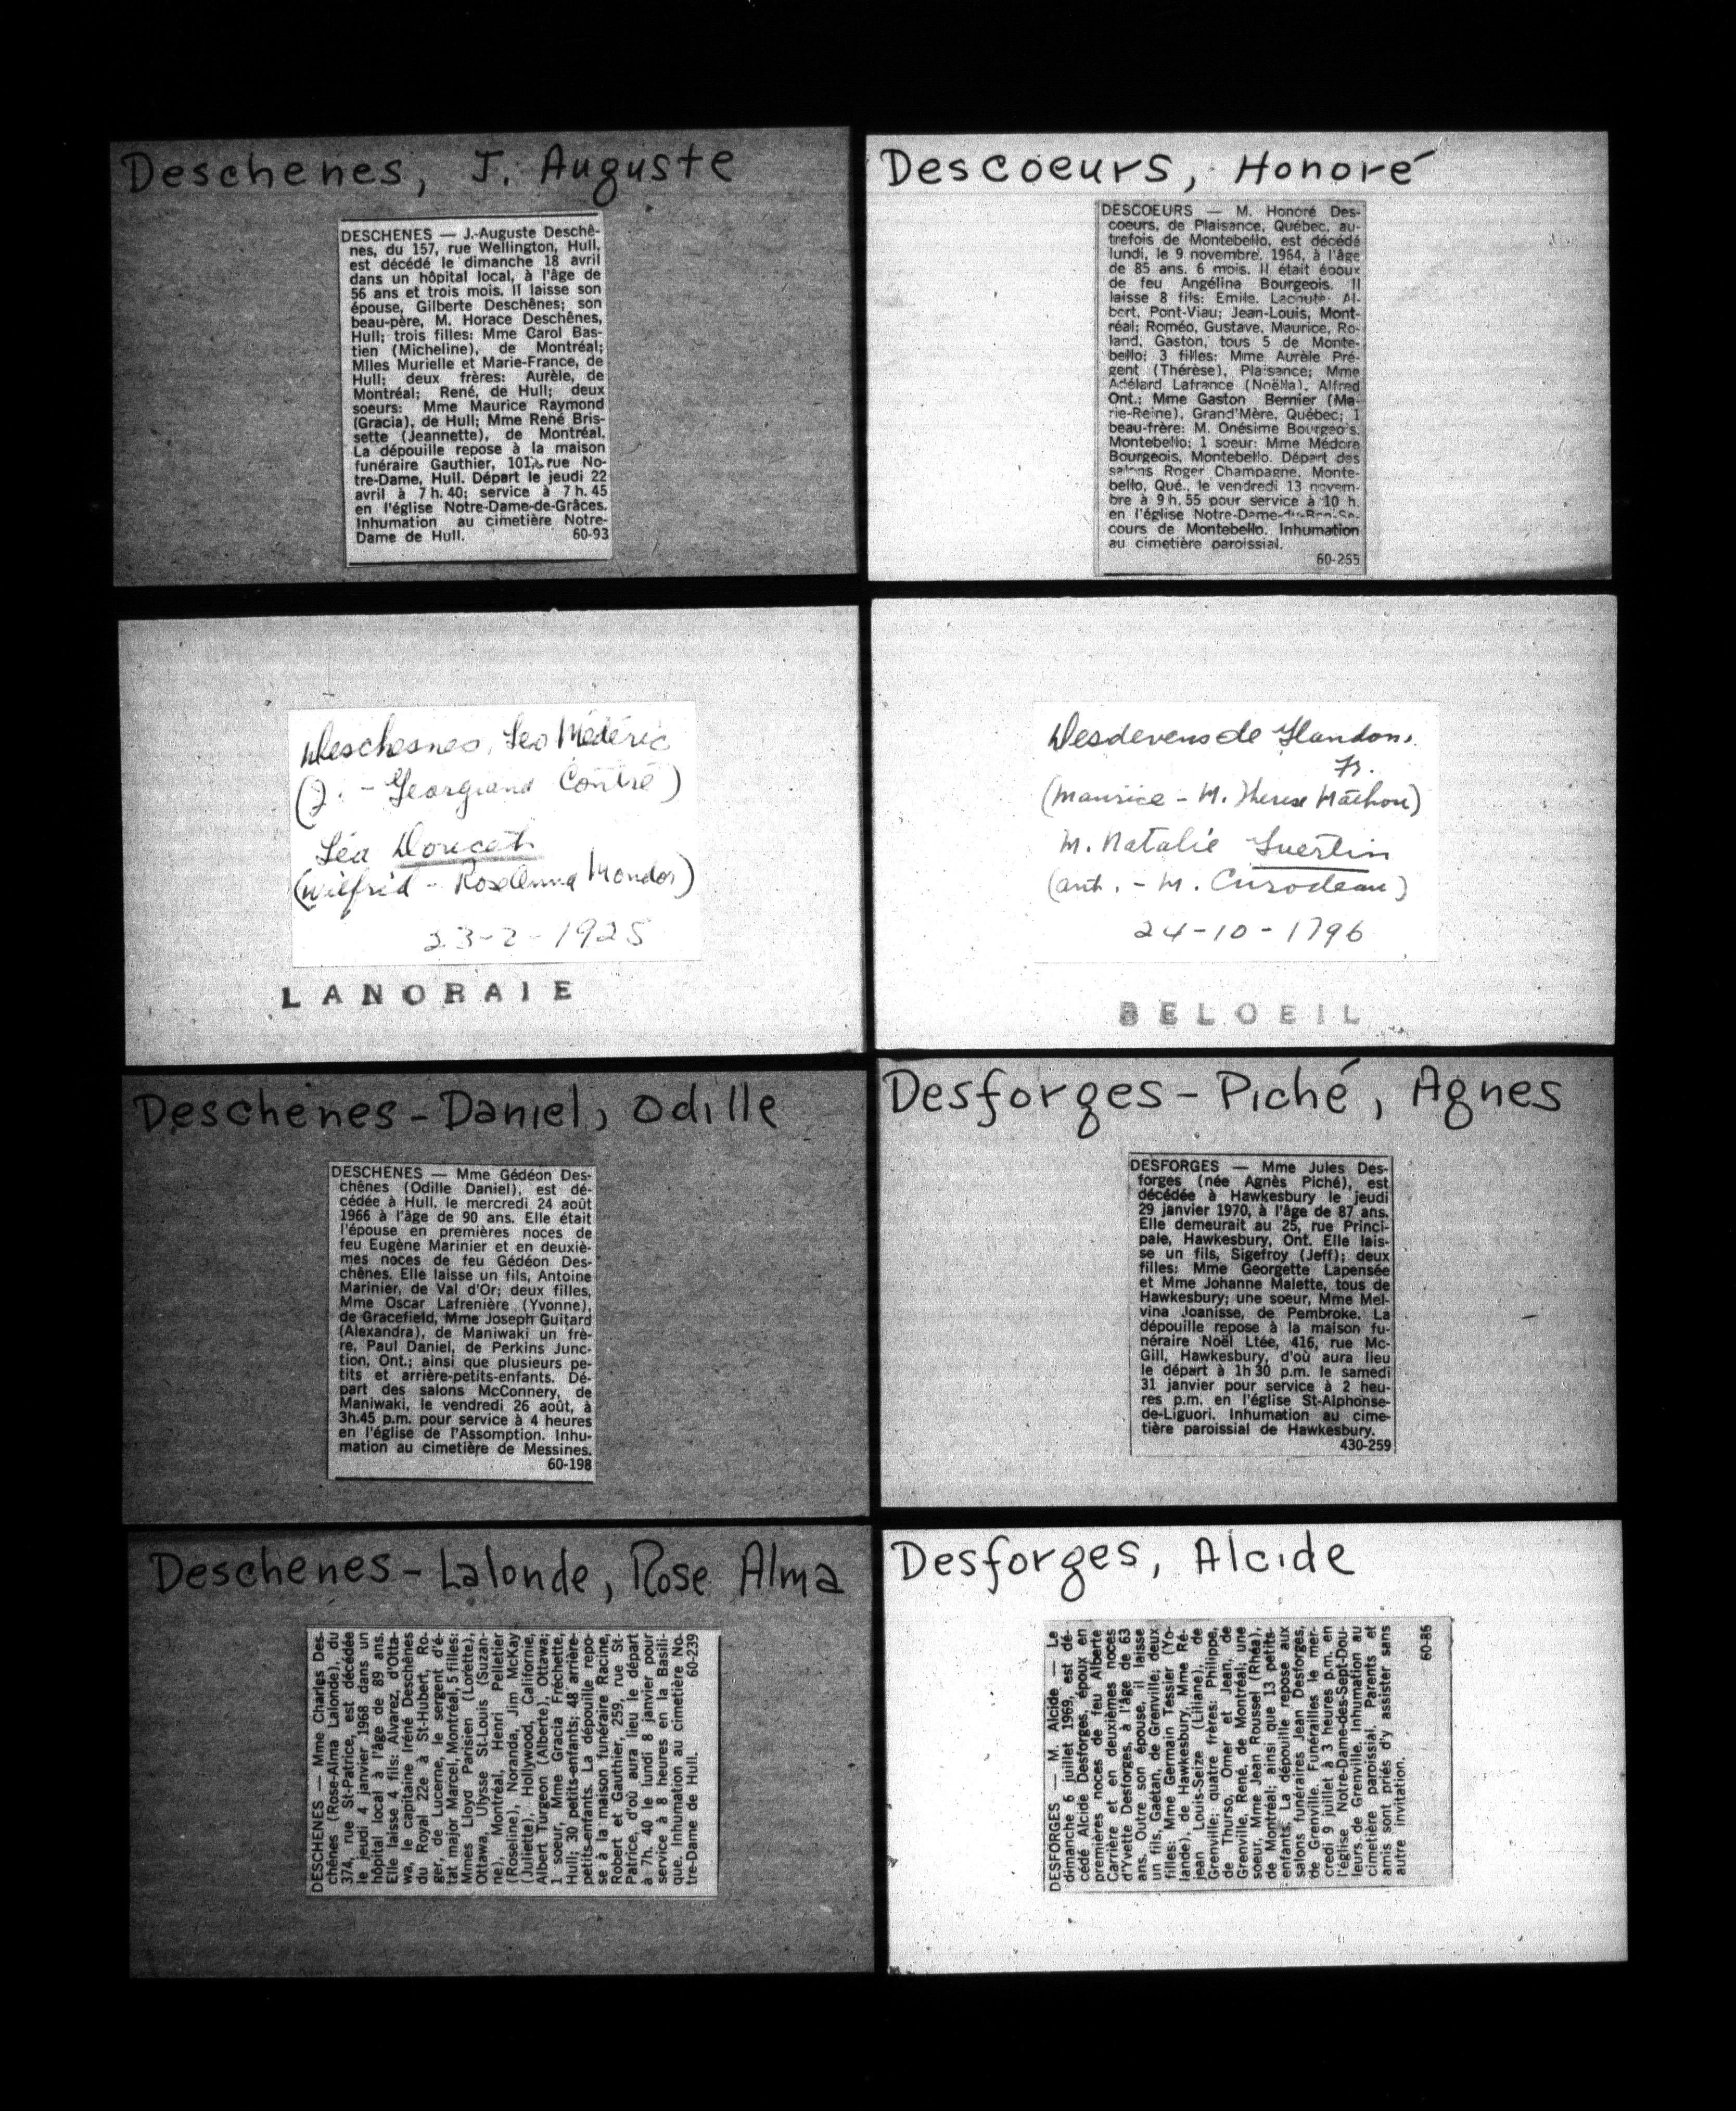 Deschenes, J. Auguste
DESCHENES — J.-Auguste Deschê-
nes, du 157, rue Wellington, Hull,
est décédé le dimanche 18 avril
dans un hôpital local, à l'âge de
56 ans et trois mois. Il laisse son
épouse, Gilberte Deschênes; son
beau-père, M. Horace Deschênes,
Hull; trois filles: Mme Carol Bas-
tien (Micheline), de Montréal;
Mlles Murielle et Marie-France, de
Hull; deux frères: Aurèle, de
Montréal; René, de Hull; deux
soeurs: Mme Maurice Raymond
(Gracia), de Hull; Mme René Bris-
sette (Jeannette), de Montréal.
La dépouille repose à la maison
funéraire Gauthier, 101, rue No-
tre-Dame, Hull. Départ le jeudi 22
avril à 7 h. 40; service à 7 h. 45
en l'église Notre-Dame-de-Grâces.
Inhumation au cimetière Notre-
Dame de Hull. 60-93
Descoeurs, Honoré
DESCOEURS — M. Honoré Des-
coeurs, de Plaisance, Québec, au-
trefois de Montebello, est décédé
lundi, le 9 novembre, 1964, à l'âge
de 85 ans. 6 mois. Il était époux
de feu Angélina Bourgeois. Il
laisse 8 fils: Emile, Lachute; Al-
bert, Pont-Viau; Jean-Louis, Mont-
réal; Roméo, Gustave, Maurice, Ro-
land, Gaston, tous 5 de Monte-
bello; 3 filles: Mme Aurèle Pré-
gent (Thérèse), Plaisance; Mme
Adélard Lafrance (Noëlla), Alfred
Ont.; Mme Gaston Bernier (Ma-
rie-Reine), Grand'Mère, Québec; 1
beau-frère: M. Onésime Bourgeois,
Montebello; 1 soeur: Mme Médore
Bourgeois, Montebello. Départ des
salons Roger Champagne, Monte-
bello, Qué., le vendredi 13 novem-
bre à 9 h. 55 pour service à 10 h.
en l'église Notre-Dame-du-Bon-Se-
cours de Montebello. Inhumation
au cimetière paroissial.
60-255
Deschesnes, Leo Médéric
(J. - Georgiana Contré)
Léa Doucet
(Wilfrid - RoseAnna Mondor)
23-2-1925
LANORAIE
Desdevens de Glandons,
Fr.
(Maurice - M. Therese Mathon)
M. Natalie Guertin
(ant. - M. Curodeau)
24-10-1796
BELOEIL
Deschenes-Daniel, Odille
DESCHENES — Mme Gédéon Des-
chênes (Odille Daniel), est dé-
cédée à Hull, le mercredi 24 août
1966 à l'âge de 90 ans. Elle était
l'épouse en premières noces de
feu Eugène Marinier et en deuxiè-
mes noces de feu Gédéon Des-
chênes. Elle laisse un fils, Antoine
Marinier, de Val d'Or; deux filles,
Mme Oscar Lafrenière (Yvonne),
de Gracefield, Mme Joseph Guitard
(Alexandra), de Maniwaki un frè-
re, Paul Daniel, de Perkins Junc-
tion, Ont.; ainsi que plusieurs pe-
tits et arrière-petits-enfants. Dé-
part des salons McConnery, de
Maniwaki, le vendredi 26 août, à
3h.45 p.m. pour service à 4 heures
en l'église de l'Assomption. Inhu-
mation au cimetière de Messines.
60-198
Desforges-Piché, Agnes
DESFORGES — Mme Jules Des-
forges (née Agnès Piché), est
décédée à Hawkesbury le jeudi
29 janvier 1970, à l'âge de 87 ans.
Elle demeurait au 25, rue Princi-
pale, Hawkesbury, Ont. Elle lais-
se un fils, Sigefroy (Jeff); deux
filles: Mme Georgette Lapensée
et Mme Johanne Malette, tous de
Hawkesbury; une soeur, Mme Mel-
vina Joanisse, de Pembroke. La
dépouille repose à la maison fu-
néraire Noël Ltée, 416, rue Mc-
Gill, Hawkesbury, d'où aura lieu
le départ à 1h 30 p.m. le samedi
31 janvier pour service à 2 heu-
res p.m. en l'église St-Alphonse-
de-Liguori. Inhumation au cime-
tière paroissial de Hawkesbury.
430-259
Deschenes-Lalonde, Rose Alma
DESCHENES — Mme Charles Des-
chênes (Rose-Alma Lalonde), du
374, rue St-Patrice, est décédée
le jeudi 4 janvier 1968 dans un
hôpital local à l'âge de 89 ans.
Elle laisse 4 fils: Alvarez, d'Otta-
wa, le capitaine Iréné Deschênes
du Royal 22e à St-Hubert, Ro-
ger, de Lucerne, le sergent d'é-
tat major Marcel, Montréal, 5 filles:
Mmes Lloyd Parisien (Lorette),
Ottawa, Ulysse St-Louis (Suzan-
ne), Montréal, Henri Pelletier
(Roseline), Noranda, Jim McKay
(Juliette), Hollywood, Californie,
Albert Turgeon (Alberte), Ottawa;
1 soeur, Mme Gracia Fréchette,
Hull; 30 petits-enfants; 48 arrière-
petits-enfants. La dépouille repo-
se à la maison funéraire Racine,
Robert et Gauthier, 259, rue St-
Patrice, d'où aura lieu le départ
à 7h. 40 le lundi 8 janvier pour
service à 8 heures en la Basili-
que. Inhumation au cimetière No-
tre-Dame de Hull. 60-239
Desforges, Alcide
DESFORGES — M. Alcide — Le
dimanche 6 juillet 1969, est dé-
cédé Alcide Desforges, époux en
premières noces de feu Alberte
Carrière et en deuxièmes noces
d'Yvette Desforges, à l'âge de 63
ans. Outre son épouse, il laisse
un fils, Gaétan, de Grenville; deux
filles: Mme Germain Tessier (Yo-
lande), de Hawkesbury, Mme Ré-
jean Louis-Seize (Liliane), de
Grenville; quatre frères: Philippe,
de Thurso, Omer et Jean, de
Grenville, René, de Montréal; une
soeur, Mme Jean Roussel (Rhéa),
de Montréal; ainsi que 13 petits-
enfants. La dépouille repose aux
salons funéraires Jean Desforges,
de Grenville. Funérailles le mer-
credi 9 juillet à 3 heures p.m. en
l'église Notre-Dame-des-Sept-Dou-
leurs de Grenville. Inhumation au
cimetière paroissial. Parents et
amis sont priés d'y assister sans
autre invitation.
60-86